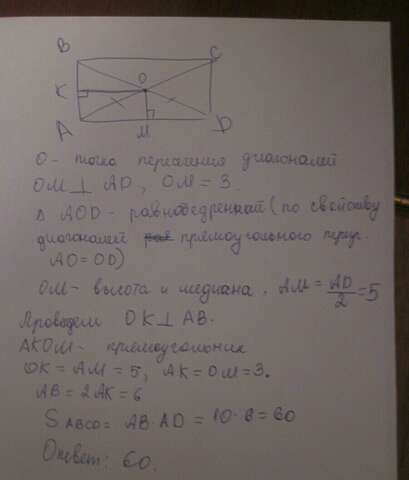 B
C
K
O
A
M
D
O - точка пересечения диагоналей
OM ⊥ AD, OM = 3.
Δ AOD - равнобедренный (по свойству
диагоналей прямоугольного
AO = OD)
OM - высота и медиана. AM = AD/2 = 5
Проведем OK ⊥ AB.
AKOM - прямоугольник
OK = AM = 5, AK = OM = 3.
AB = 2AK = 6
S ABCD = AB · AD = 10 · 6 = 60
Ответ: 60.